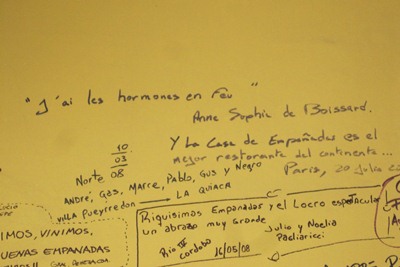 "J'ai les hormones en feu"
Anne Sophie de Boissard.
Y La Casa de Empañadas es el
mejor restorante del continente...
Paris, 20 julio
10
03
08
Norte
ANDRE, Gas, Marce, Pablo, Gus y Negro
Villa Pueyrredon → LA QUIACA
IMOS, VINIMOS,
UENAS EMPANADAS
Riquisimas Empanadas y el Locro espectacular
un abrazo muy Grande
Julio y Noelia
Pagliaricci
Rio III
Cordoba
16/05/08